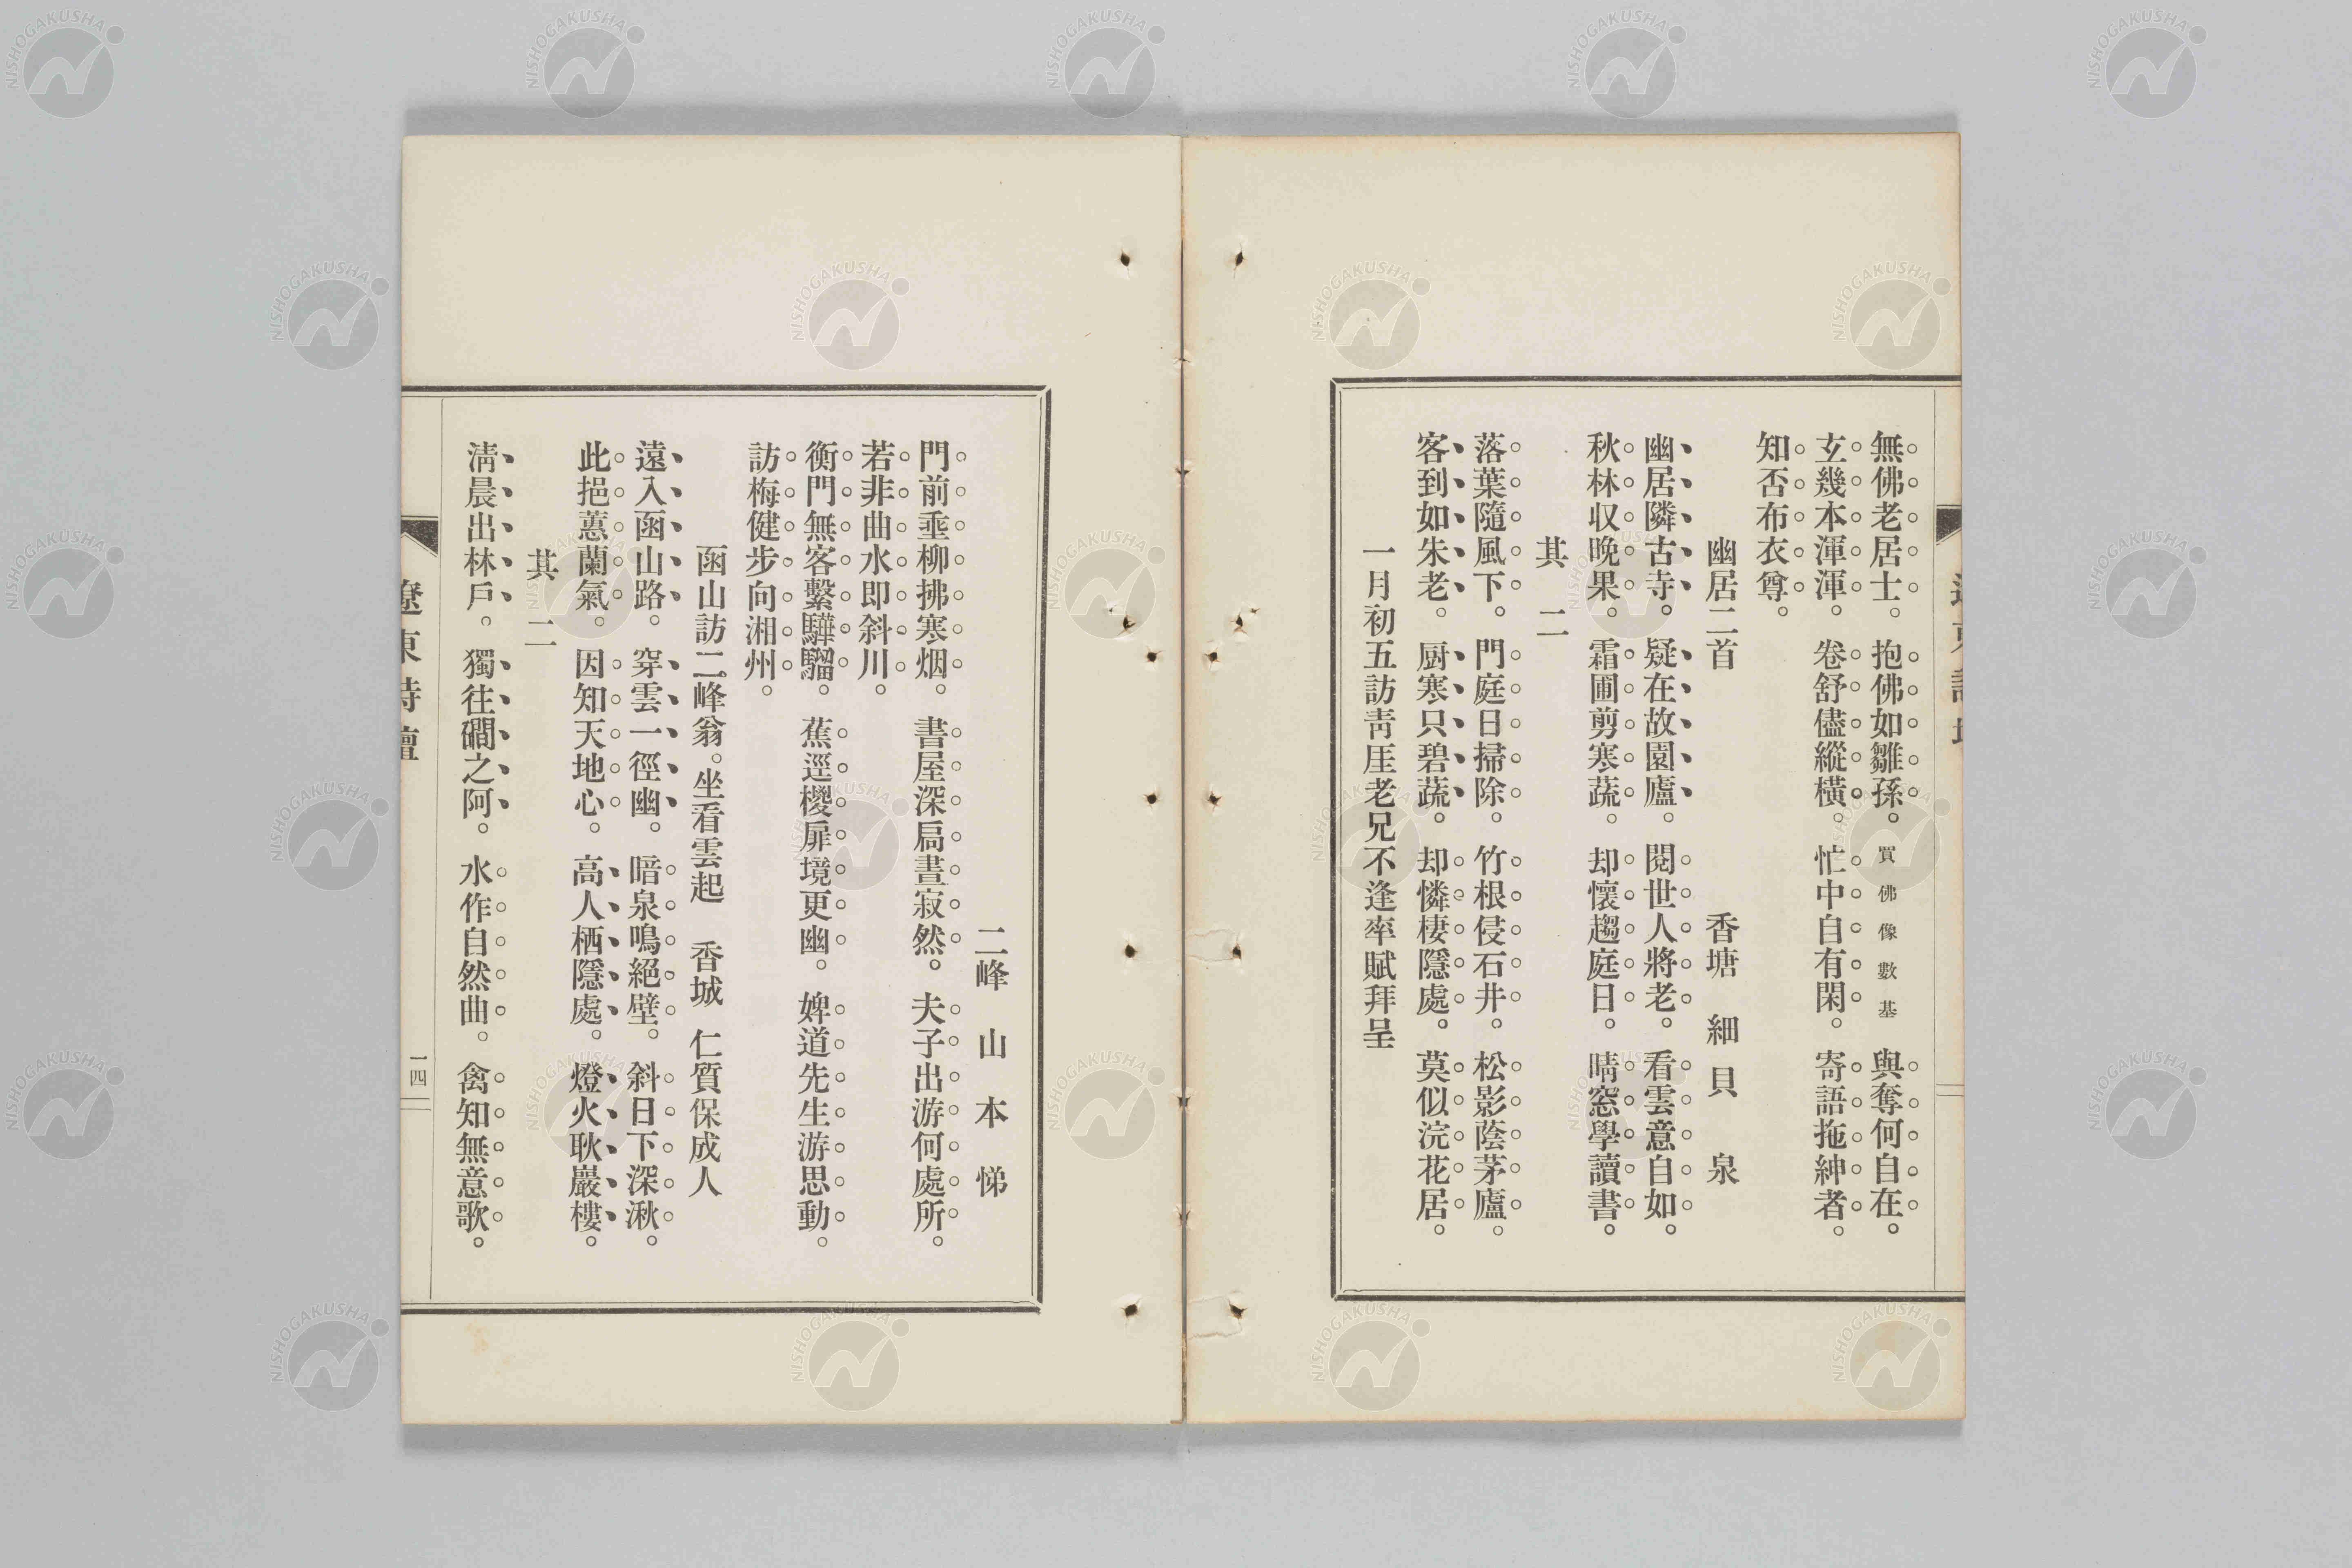 無佛老居士。抱佛如雛孫。買佛像數基與奪何自在。
玄幾本渾渾。卷舒儘縱橫。忙中自有閑。寄語拖紳者。
知否布衣尊。
幽居二首 香塘 細貝 泉
幽居隣古寺。疑在故園廬。閱世人將老。看雲意自如。
秋林収晩果。霜圃剪寒蔬。却懷趨庭日。晴窓學讀書。
其二
落葉隨風下。門庭日掃除。竹根侵石井。松影蔭茅廬。
客到如朱老。厨寒只碧蔬。却憐棲隱處。莫似浣花居。
一月初五訪靑厓老兄不逢率賦拜呈
二峰 山本悌
門前垂柳拂寒烟。書屋深扃晝寂然。夫子出游何處所。
若非曲水即斜川。
衡門無客繫驊騮。蕉逕櫻扉境更幽。婢道先生游思動。
訪梅健步向湘州。
函山訪二峰翁。坐看雲起 香城 仁賀保成人
遠入函山路。穿雲一徑幽。暗泉鳴絕壁。斜日下深湫。
此挹蕙蘭氣。因知天地心。高人栖隱處。燈火耿巖樓。
其二
淸晨出林戶。獨往磵之阿。水作自然曲。禽知無意歌。
遼東詩壇
一四
NISHOGAKUSHA